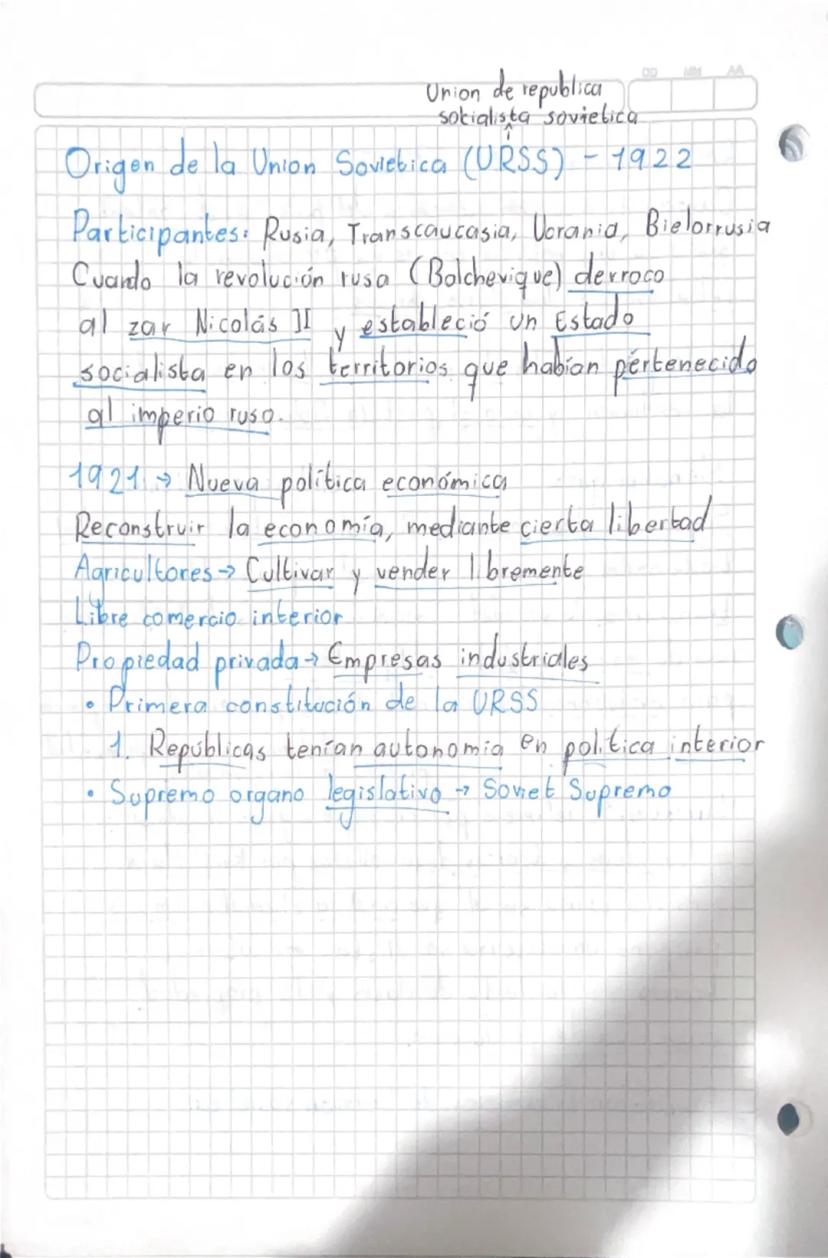 DD MM AA
Union de republica
socialista sovietica
Origen de la Union Sovietica (URSS) - 1922
Participantes: Rusia, Transcaucasia, Ucrania, Bielorrusia
Cuando la revolución rusa (Bolchevique) derroco
al zar Nicolás II y estableció un Estado
socialista en los territorios que habían pertenecido
al imperio ruso.
1921 → Nueva política económica
Reconstruir la economía, mediante cierta libertad
Agricultores → Cultivar y vender libremente
Libre comercio interior
Propiedad privada → Empresas industriales
• Primera constitución de la URSS
1. Repúblicas tenían autonomia en politica interior
• Supremo organo legislativo → Soviet Supremo